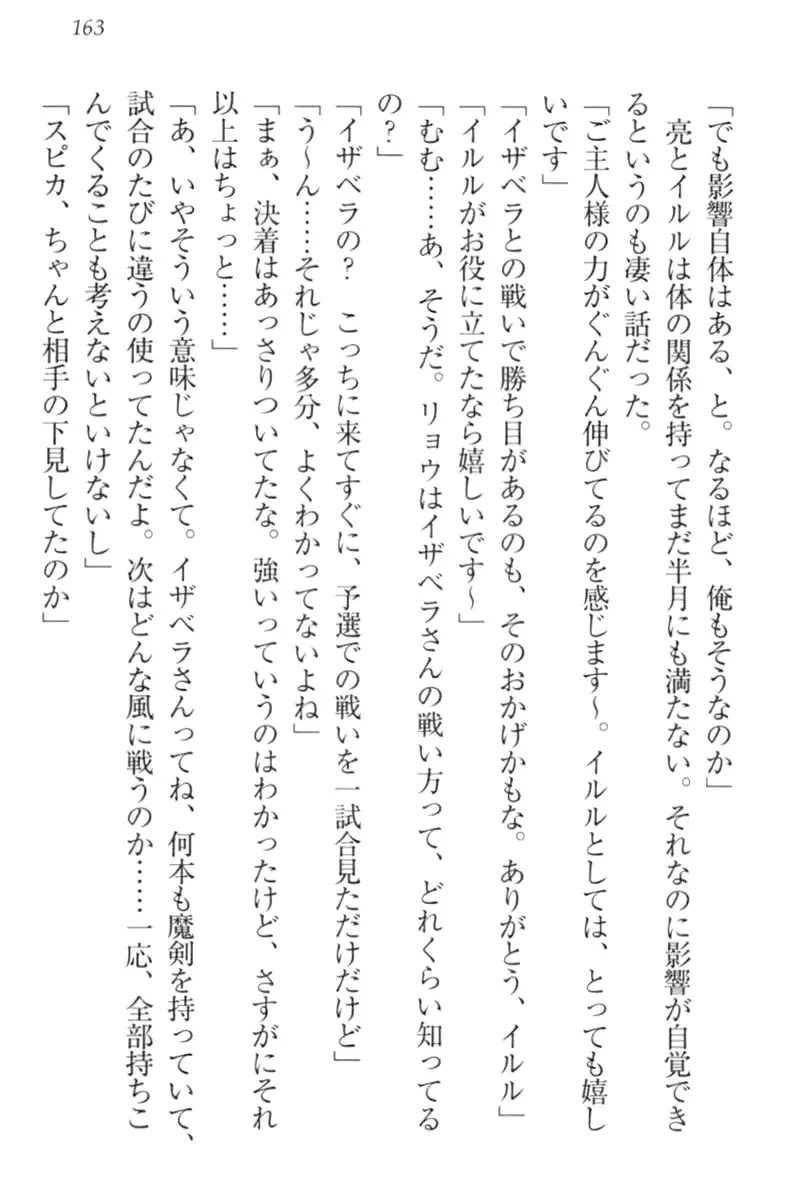 163
「でも影響自体はある、と。なるほど、俺もそうなのか」
亮とイルルは体の関係を持ってまだ半月にも満たない。それなのに影響が自覚でき
るというのも凄い話だった。
「ご主人様の力がぐんぐん伸びてるのを感じます～。イルルとしては、とっても嬉し
いです」
「イザベラとの戦いで勝ち目があるのも、そのおかげかもな。ありがとう、イルル」
「イルルがお役に立てたなら嬉しいです～」
「むむ……あ、そうだ。リョウはイザベラさんの戦い方って、どれくらい知ってる
の？」
「イザベラの？　こっちに来てすぐに、予選での戦いを一試合見ただけだけど」
「う～ん……それじゃ多分、よくわかってないよね」
「まぁ、決着はあっさりついてたな。強いっていうのはわかったけど、さすがにそれ
以上はちょっと……」
「あ、いやそういう意味じゃなくて。イザベラさんってね、何本も魔剣を持っていて、
試合のたびに違うの使ってたんだよ。次はどんな風に戦うのか……一応、全部持ちこ
んでくることも考えないといけないし」
「スピカ、ちゃんと相手の下見してたのか」